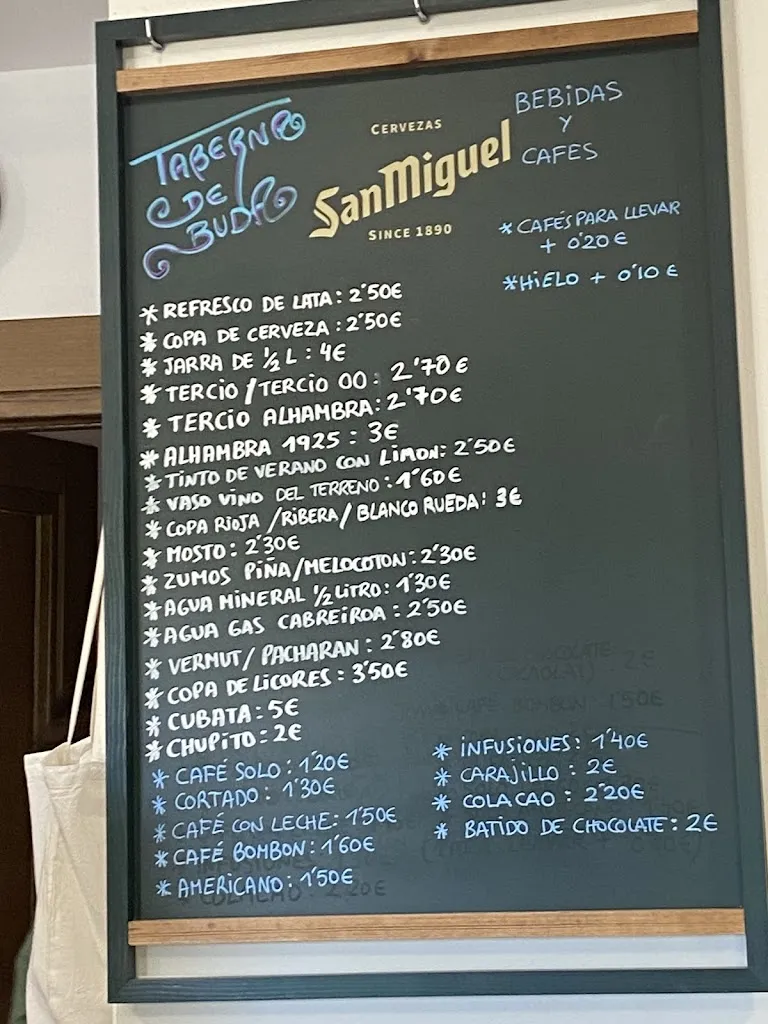 TABERNA
DE
BUDA
CERVEZAS
SanMiguel
SINCE 1890
BEBIDAS
Y
CAFES
* CAFÉS PARA LLEVAR
+ 0'20 €
*HIELO + 0'10 €
* REFRESCO DE LATA: 2'50€
* COPA DE CERVEZA: 2'50€
* JARRA DE ½ L: 4€
* TERCIO/TERCIO 00: 2'70€
* TERCIO ALHAMBRA: 2'70€
* ALHAMBRA 1925: 3€
* TINTO DE VERANO CON LIMON: 2'50€
* VASO VINO DEL TERRENO: 1'60€
* COPA RIOJA/RIBERA/BLANCO RUEDA: 3€
* MOSTO: 2'30€
* ZUMOS PIÑA/MELOCOTON: 2'30€
* AGUA MINERAL ½ LITRO: 1'30€
* AGUA GAS CABREIROA: 2'50€
* VERMUT/PACHARAN: 2'80€
* COPA DE LICORES: 3'50€
* CUBATA: 5€
* CHUPITO: 2€
* CAFÉ SOLO: 1'20€
* CORTADO: 1'30€
* CAFÉ CON LECHE: 1'50€
* CAFÉ BOMBON: 1'60€
* AMERICANO: 1'50€
* INFUSIONES: 1'40€
* CARAJILLO: 2€
* COLACAO: 2'20€
* BATIDO DE CHOCOLATE: 2€